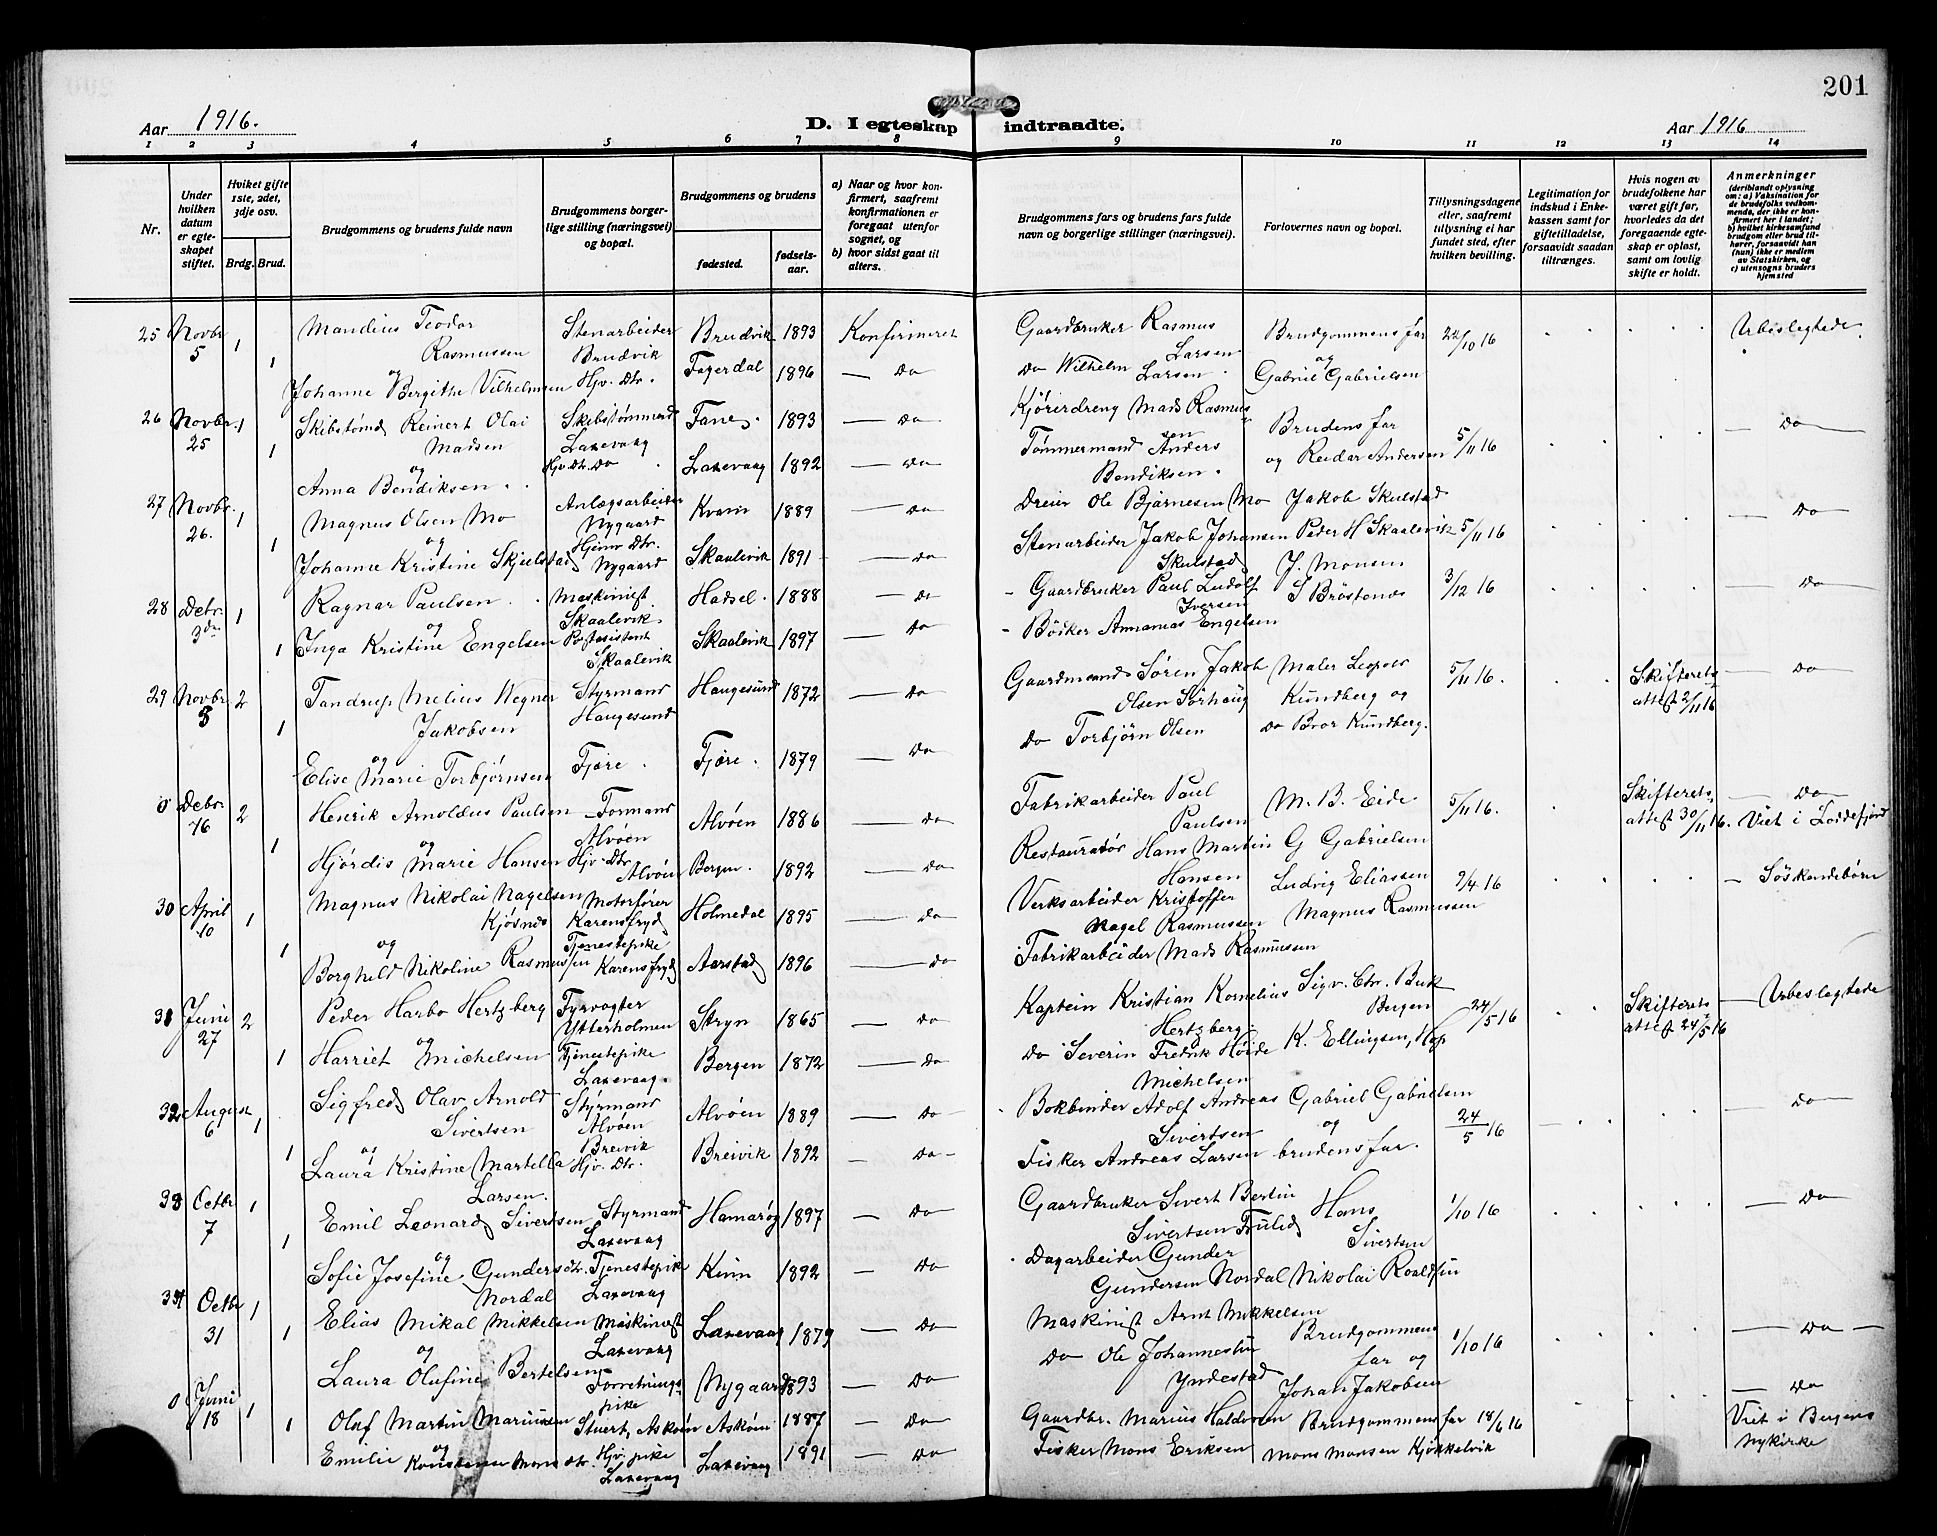 201
Aar 1916.
D. I egteskap indtraadte.
Aar 1916
1 2 3 4 5 6 7 8 9 10 11 12 13 14
Nr.
Under hvilken datum er egteskapet stiftet.
Hviket gifte 1ste, 2det, 3dje osv.
Brdg. Brud.
Brudgommens og brudens fulde navn
Brudgommens borgerlige stilling (næringsvei) og bopæl.
Brudgommens og brudens
fødested. fødselsaar.
a) Naar og hvor konfirmert, saafremt konfirmationen er foregaat utenfor sognet, og
b) hvor sidst gaat til alters.
Brudgommens fars og brudens fars fulde navn og borgerlige stillinger (næringsvei).
Forlovernes navn og bopæl.
Tillysningsdagene eller, saafremt tillysning ei har fundet sted, efter hvilken bevilling.
Legitimation for indskud i Enkekassen samt for giftetilladelse, forsaavidt saadan tiltrænges.
Hvis nogen av brudefolkene har været gift før, hvorledes da det foregaaende egteskap er opløst, samt om lovlig skifte er holdt.
Anmerkninger
(deriblandt oplysning om: a) Vaksination for de brudefolks vedkommende, der ikke er konfirmert her i landet; b) hvilket kirkesamfund brudgom eller brud tilhører, forsaavidt han (hun) ikke er medlem av Statskirken, og c) utensogns bruders hjemsted
25 Novbr 5 1 Mandius Teodor Rasmussen Stenarbeider Brudvik Brudvik 1893 Konfirmeret Gaardbruker Rasmus Larsen Brudgommens far 22/10 16 Ubeslegtede
og
1 Johanne Bergithe Vilhelmsen Hjv. Dtr. Fagerdal 1896 — Do Do Wilhelm Larsen og Gabriel Gabrielsen
26 Novbr. 25 1 Skibstømd Reinert Olai Madsen Skibstømmerd Laxevaag Fane 1893 — Do Kjøredreng Mads Rasmussen Brudens far 5/11 16 — Do
og
1 Anna Bendiksen Hjv. Dtr. Do Laxevaag 1892 — Do Tømmermand Anders Bendiksen og Reidar Andersen
27 Novbr. 26. 1 Magnus Olsen Mo Anlægsarbeider Nygaard Kvam 1889 — Do Dreier Ole Bjarnesen Mo Jakob Skulstad 5/11 16 — Do
og
1 Johanne Kristine Skjelstad Hjemv Dtr. Nygaard Skaalevik 1891 — Do Stenarbeider Jakob Johansen Skulstad Peder H Skaalevik
28 Debr. 3die 1 Ragnar Paulsen Maskinist Skaalevik Hadsel 1888 — Do Gaardbruker Paul Ludolf Iversen J. Monsen 3/12 16 — Do
og
1 Inga Kristine Engelsen Postasistent Skaalevik Skaalevik 1897 — Do Bødker Annanias Engelsen S Brøstenes
29 Novbr. 5 2 Tandrup Melius Wegner Jakobsen Styrmand Haugesund Haugesund 1872 — Do Gaardmand Søren Jakob Olsen Sørhaug Maler Leopold Kundberg og 5/11 16. Skifterets attest 2/11 16 — Do
og
1 Elise Marie Torbjørnsen Fjære Fjære 1879 — Do Do Torbjørn Olsen Do Bror Kundberg.
0 Debr. 16 2 Henrik Arnoldus Paulsen Formand Alvøen Alvøen 1886 — Do Fabrikarbeider Paul Paulsen M. B. Eide 5/11 16. Skifterets attest 30/11 16. — Do Viet i Loddefjord
og
1 Hjørdis Marie Hansen Hjv. Dtr. Alvøen Bergen 1892 — Do Restauratør Hans Martin Hansen G Gabrielsen
30 April 10 1 Magnus Nikolai Nagelsen Kjøsnes Motorfører Karensfryd Holmedal 1895 — Do Verksarbeider Kristoffer Nagel Rasmussen Ludvig Eliassen 9/4 16 — Søskendebørn
og
1 Borghild Nikoline Rasmussen Tjenestepike Karensfryd Aarstad 1896 — Do Fabrikarbeider Mads Rasmussen Magnus Rasmussen
31 Juni 27 2 Peder Harbo Hertzberg Fyrvogter Ytterholmen Stryn 1865 — Do Kaptein Kristian Kornelius Hertzberg Sigv. Chr. Bøk Bergen 24/5 16 Skifterets attest 24/5 16 — Ubeslegtede
og
1 Harriet Michelsen Tjenestepike Laxevaag. Bergen 1872 — Do Do Severin Fredrik Høide Michelsen K. Ellingsen, Hop
32 August 6 1 Sigfred Olav Arnold Sivertsen Styrmand Alvøen Alvøen 1889 — Do Bokbinder Adolf Andreas Sivertsen Gabriel Gabrielsen 24/5 16 — Do
og
1 Laura Kristine Martella Larsen. Breivik Hjv. Dtr. Breivik 1892 — Do Fisker Andreas Larsen og brudens far.
33 Octbr 7 1 Emil Leonard Sivertsen Styrmand Laxevaag Hamarøy 1897 — Do Gaardbruker Sivert Bertin Sivertsen Hans Sivertsen 1/10 16 — Do
og
1 Sofie Josefine Gundersdtr. Nordal Tjenestepike Laxevaag Kinn 1892 — Do Dagarbeider Gunder Gundersen Nordal Nikolai Roaldsen
34 Octbr 31 1 Elias Mikal Mikkelsen Maskinist Laxevaag Laxevaag 1879 — Do Maskinist Arnt Mikkelsen Brudgommens far og 1/10 16 — Do —
og
1 Laura Olufine Bertelsen Forretnings-pike Nygaard 1893 — Do Do Ole Johannessen Yndestad Johan Jakobsen
0 Juni 18 1 Olaf Martin Mariussen Stuert, Askøen Askøen 1887 — Do Gaardbr. Marius Haldorsen Brudgommens far 18/6 16 — Do Viet i Bergens Nykirke
og
1 Emilie Konstanse Mons dtr. Hjv. pike Laxevaag Laxevaag 1891 — Do Fisker Mons Eriksen Mons Monsen Kjøkkelvik